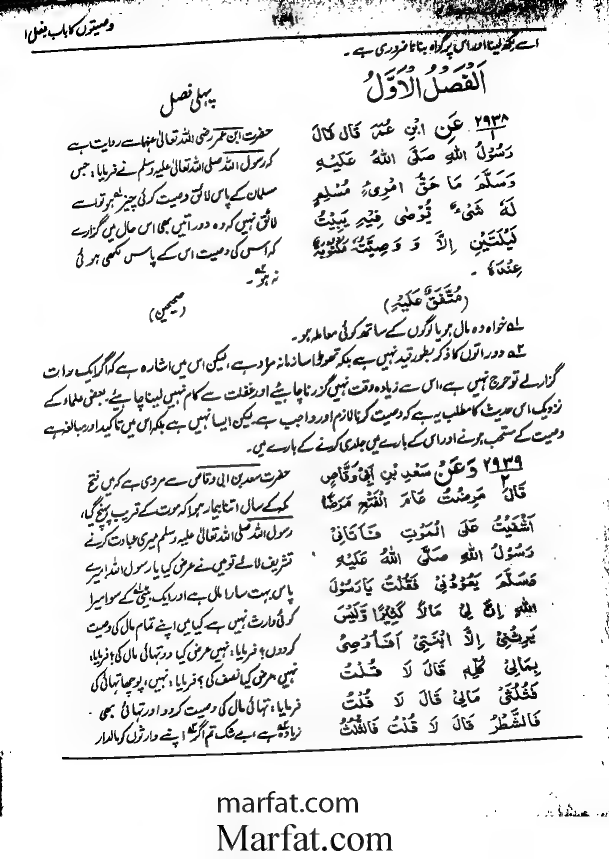 وصیتوں کا باب فصل ۱
اسے لکھ لینا اور اس پر گواہ بنانا ضروری ہے۔
اَلْفَصْلُ الْاَوَّلُ
پہلی فصل
۲۹۳۸
۱
عَنِ ابْنِ عُمَرَ قَالَ قَالَ
رَسُوْلُ اللهِ صَلَّى اللهُ عَلَيْهِ
وَسَلَّمَ مَا حَقُّ امْرِئٍ مُسْلِمٍ
لَهٗ شَىْءٌ يُوْصٰى فِيْهِ يَبِيْتُ
لَيْلَتَيْنِ اِلَّا وَ وَصِيَّتُهٗ مَكْتُوْبَةٌ
عِنْدَهٗ۔
(مُتَّفَقٌ عَلَيْهِ)
حضرت ابن عمر رضی اللہ تعالیٰ عنہما سے روایت ہے
کہ رسول اللہ صلی اللہ تعالیٰ علیہ وسلم نے فرمایا: جس
مسلمان کے پاس لائق وصیت کوئی چیز ہو تو اسے
لائق نہیں کہ وہ دو راتیں بھی اس حال میں گزارے
کہ اس کی وصیت اس کے پاس لکھی ہوئی
نہ ہو۔
(صحیحین)
۱ے خواہ وہ مال ہو یا لوگوں کے ساتھ کوئی معاملہ ہو۔
۲ے دو راتوں کا ذکر بطور قید نہیں ہے بلکہ تھوڑا سا زمانہ مراد ہے، لیکن اس میں اشارہ ہے کہ اگر ایک دو رات
گزار لے تو حرج نہیں ہے، اس سے زیادہ وقت نہیں گزرنا چاہیے اور غفلت سے کام نہیں لینا چاہیے، بعض علماء کے
نزدیک اس حدیث کا مطلب یہ ہے کہ وصیت کرنا لازم اور واجب ہے، لیکن ایسا نہیں ہے بلکہ اس میں تاکید اور مبالغہ ہے
وصیت کے مستحب ہونے اور اس کے بارے میں جلدی کرنے کے بارے میں۔
۲۹۳۹
۲
وَعَنْ سَعْدِ بْنِ اَبِىْ وَقَّاصٍ
قَالَ مَرِضْتُ عَامَ الْفَتْحِ مَرَضًا
اَشْفَيْتُ عَلَى الْمَوْتِ فَاَتَانِىْ
رَسُوْلُ اللهِ صَلَّى اللهُ عَلَيْهِ
وَسَلَّمَ يَعُوْدُنِىْ فَقُلْتُ يَا رَسُوْلَ
اللهِ اِنَّ لِىْ مَالًا كَثِيْرًا وَّلَيْسَ
يَرِثُنِىْ اِلَّا ابْنَتِىْ اَفَاُوْصِىْ
بِمَالِىْ كُلِّهٖ قَالَ لَا قُلْتُ
فَثُلُثَىْ مَالِىْ قَالَ لَا قُلْتُ
فَالشَّطْرُ قَالَ لَا قُلْتُ فَالثُّلُثُ
حضرت سعد بن ابی وقاص سے مروی ہے کہ میں فتح
مکہ کے سال اتنا بیمار ہوا کہ موت کے قریب پہنچ گیا،
رسول اللہ صلی اللہ تعالیٰ علیہ وسلم میری عیادت کرنے
تشریف لائے تو میں نے عرض کیا یا رسول اللہ! میرے
پاس بہت سارا مال ہے اور ایک بیٹی کے سوا میرا
کوئی وارث نہیں ہے کیا میں اپنے تمام مال کی وصیت
کر دوں؟ فرمایا: نہیں عرض کیا دو تہائی مال کی؟ فرمایا:
نہیں عرض کیا نصف کی؟ فرمایا: نہیں، پوچھا تہائی کی
فرمایا: تہائی مال کی وصیت کر دو اور تہائی بھی
زیادہ ہے، بے شک تم اگر اپنے وارثوں کو مالدار
marfat.com
Marfat.com